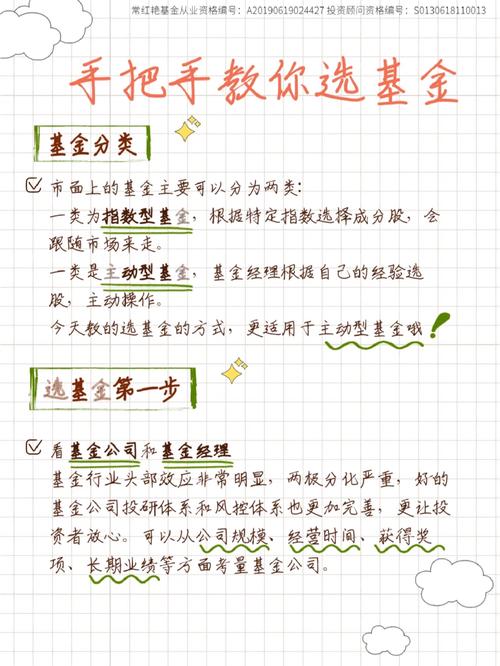 常红艳基金从业资格编号：A20190619024427 投资顾问资格编号：S0130618110013
手把手教你选基金
基金分类
市面上的基金主要可以分为两类：
一类为指数型基金，根据特定指数选择成分股，会
跟随市场来走。
一类是主动型基金，基金经理根据自己的经验选
股，主动操作。
今天教的选基金的方式，更适用于主动型基金哦！
选基金第一步
看基金公司和基金经理
基金行业头部效应非常明显，两极分化严重，好的
基金公司投研体系和风控体系也更加完善，更让投
资者放心。可以从公司规模、经营时间、获得奖
项、长期业绩等方面考量基金公司。